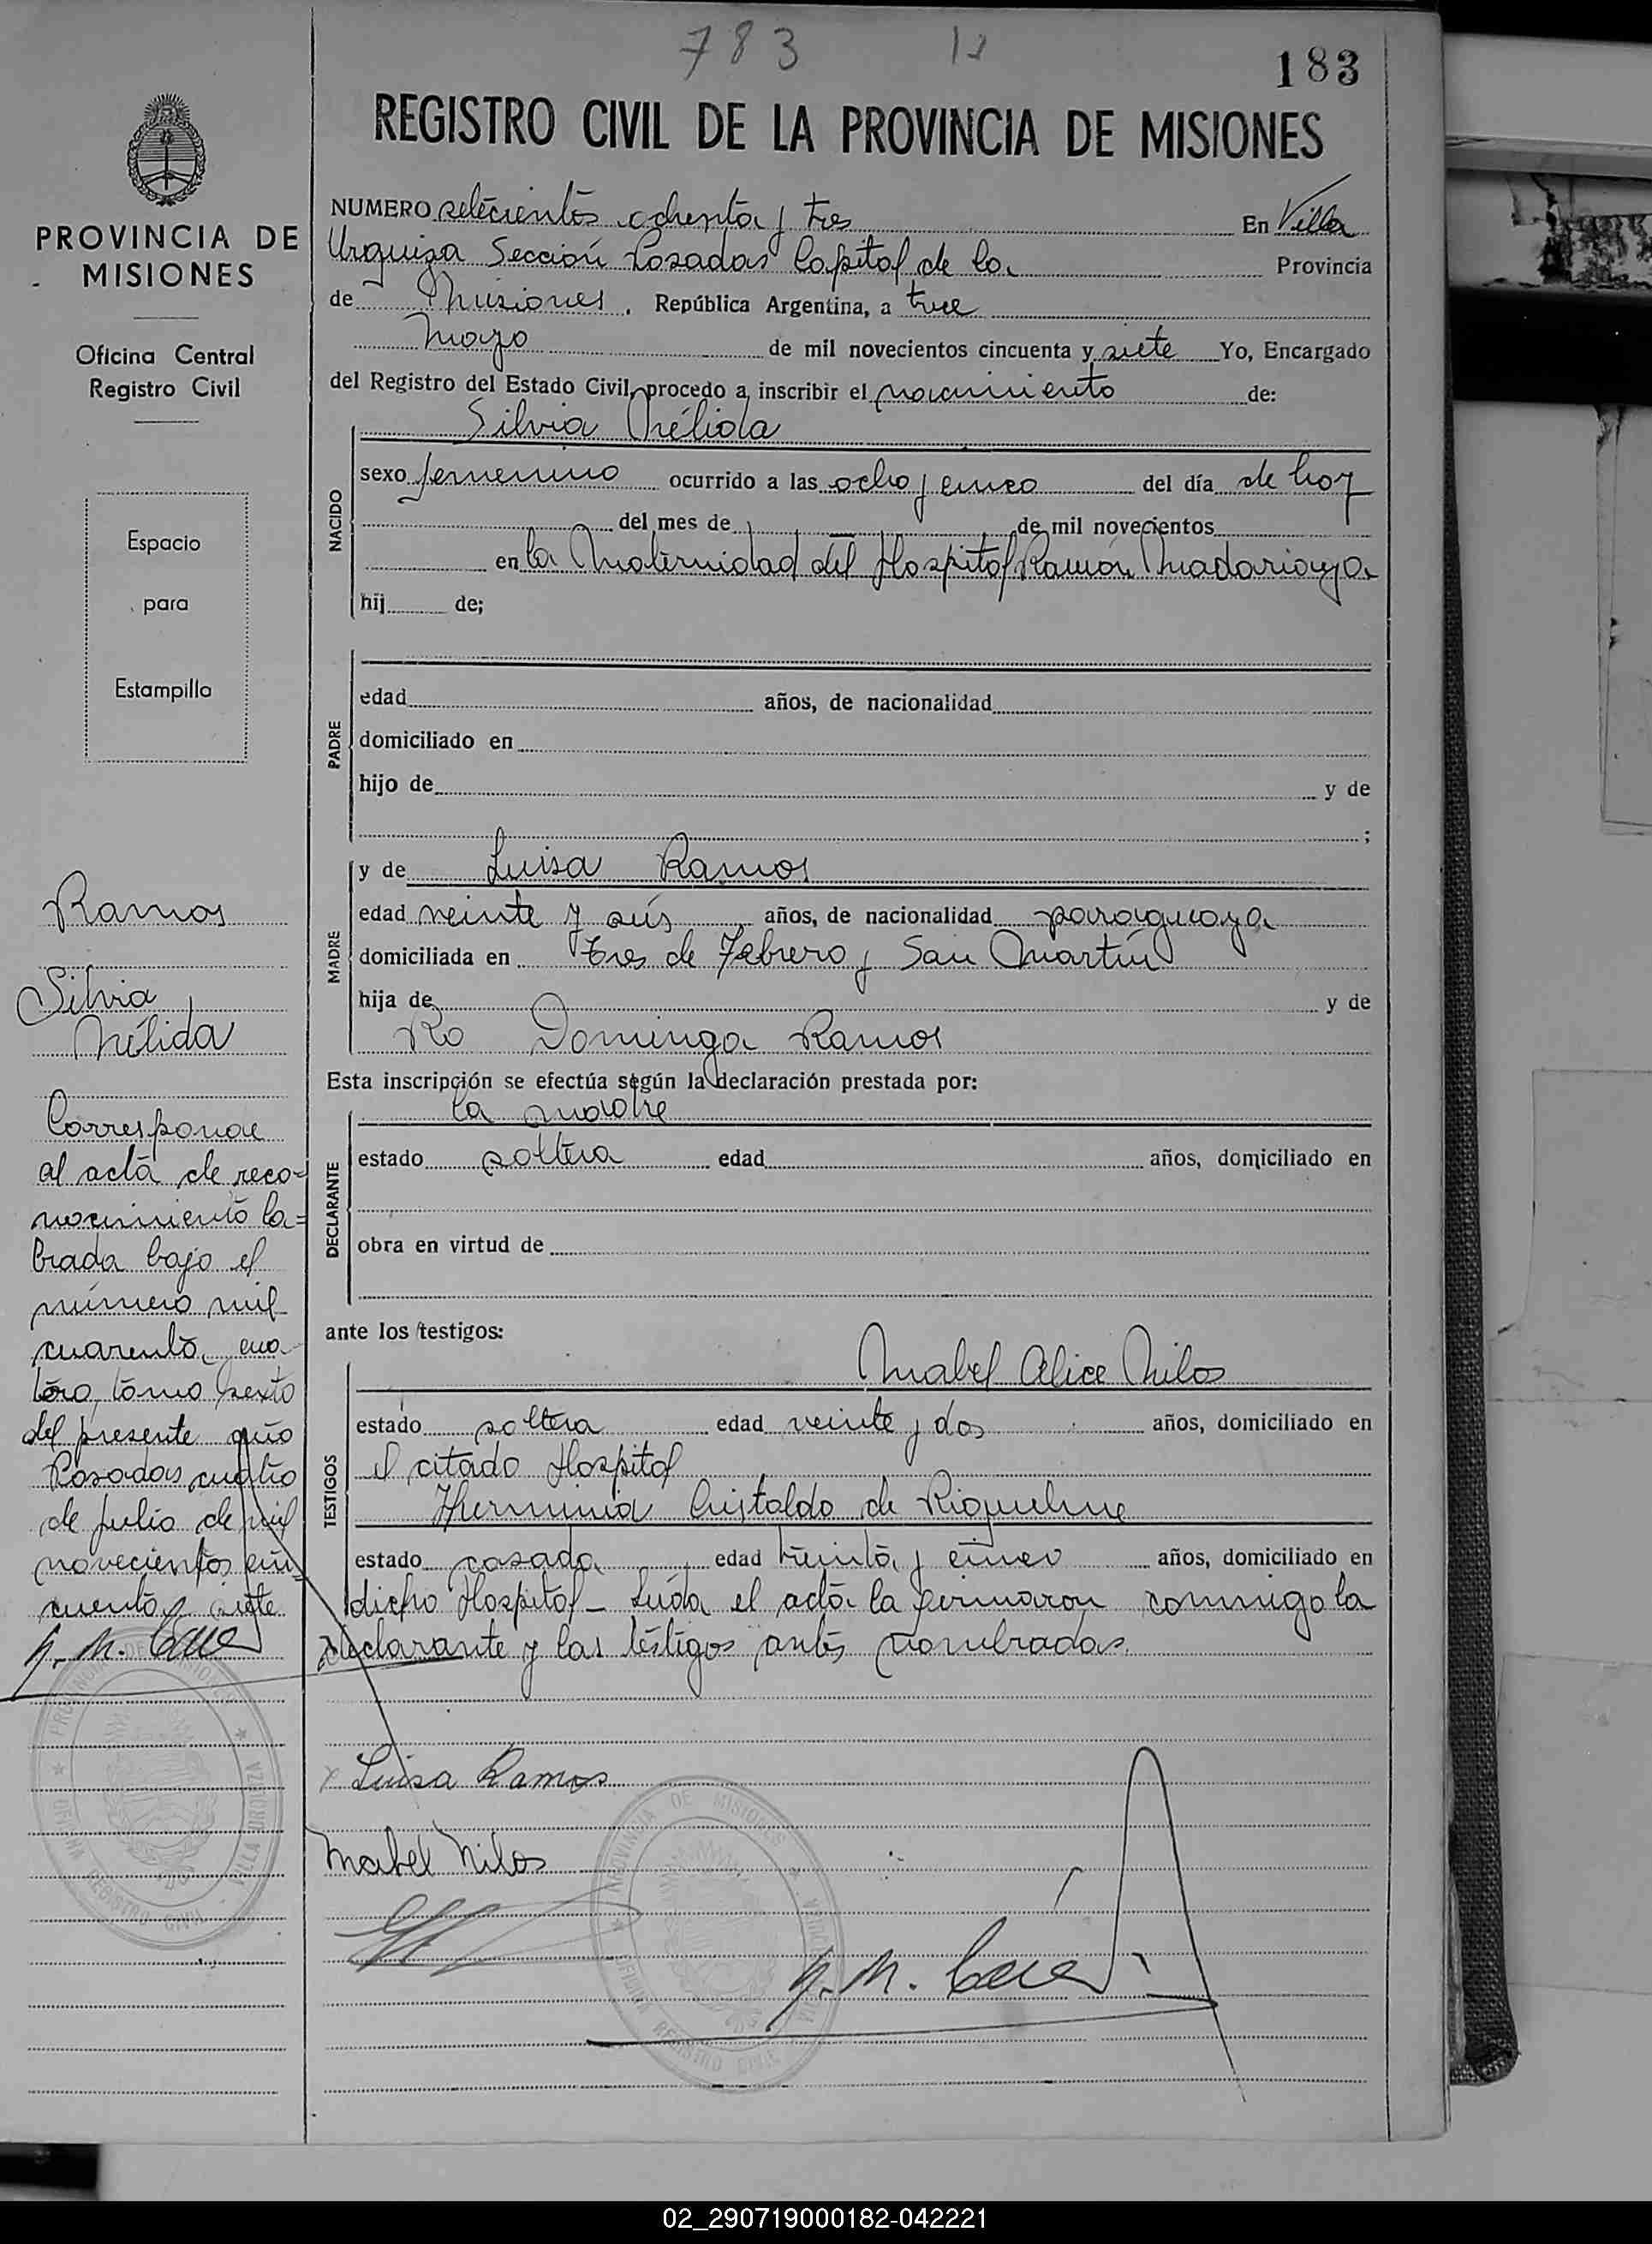 783
183
REGISTRO CIVIL DE LA PROVINCIA DE MISIONES
PROVINCIA DE
MISIONES
Oficina Central
Registro Civil
Espacio
para
Estampilla
Ramos
Silvia
Nélida
Corresponde
al acta de reco-
nocimiento la=
brada bajo el
número mil
cuarenta cua
tro, tomo sexto
del presente año
Posadas cuatro
de julio de mil
novecientos cin
cuenta y siete
NUMERO setecientos ochenta y tres En Villa
Urquiza Sección Posadas Capital de la Provincia
de Misiones, República Argentina, a trece
Mayo de mil novecientos cincuenta y siete Yo, Encargado
del Registro del Estado Civil, procedo a inscribir el nacimiento de:
Silvia Nélida
NACIDO
sexo femenino ocurrido a las ocho y cinco del día de hoy
del mes de de mil novecientos
en la Maternidad del Hospital Ramón Madariaga
hij de;
PADRE
edad años, de nacionalidad
domiciliado en
hijo de y de
;
MADRE
y de Luisa Ramos
edad veinte y seis años, de nacionalidad paraguaya
domiciliada en Tres de Febrero y San Martín
hija de y de
Dominga Ramos
Esta inscripción se efectúa según la declaración prestada por:
la madre
DECLARANTE
estado soltera edad años, domiciliado en
obra en virtud de
ante los testigos:
Mabel Alice Nilos
TESTIGOS
estado soltera edad veinte y dos años, domiciliado en
el citado Hospital
Herminia Cristaldo de Riquelme
estado casada edad treinta y cinco años, domiciliado en
dicho Hospital - Leída el acta la firmaron conmigo la
declarante y las testigos antes nombradas.
Luisa Ramos
Mabel Nilos
PROVINCIA DE MISIONES
OFICINA REGISTRO CIVIL
VILLA URQUIZA
02_290719000182-042221